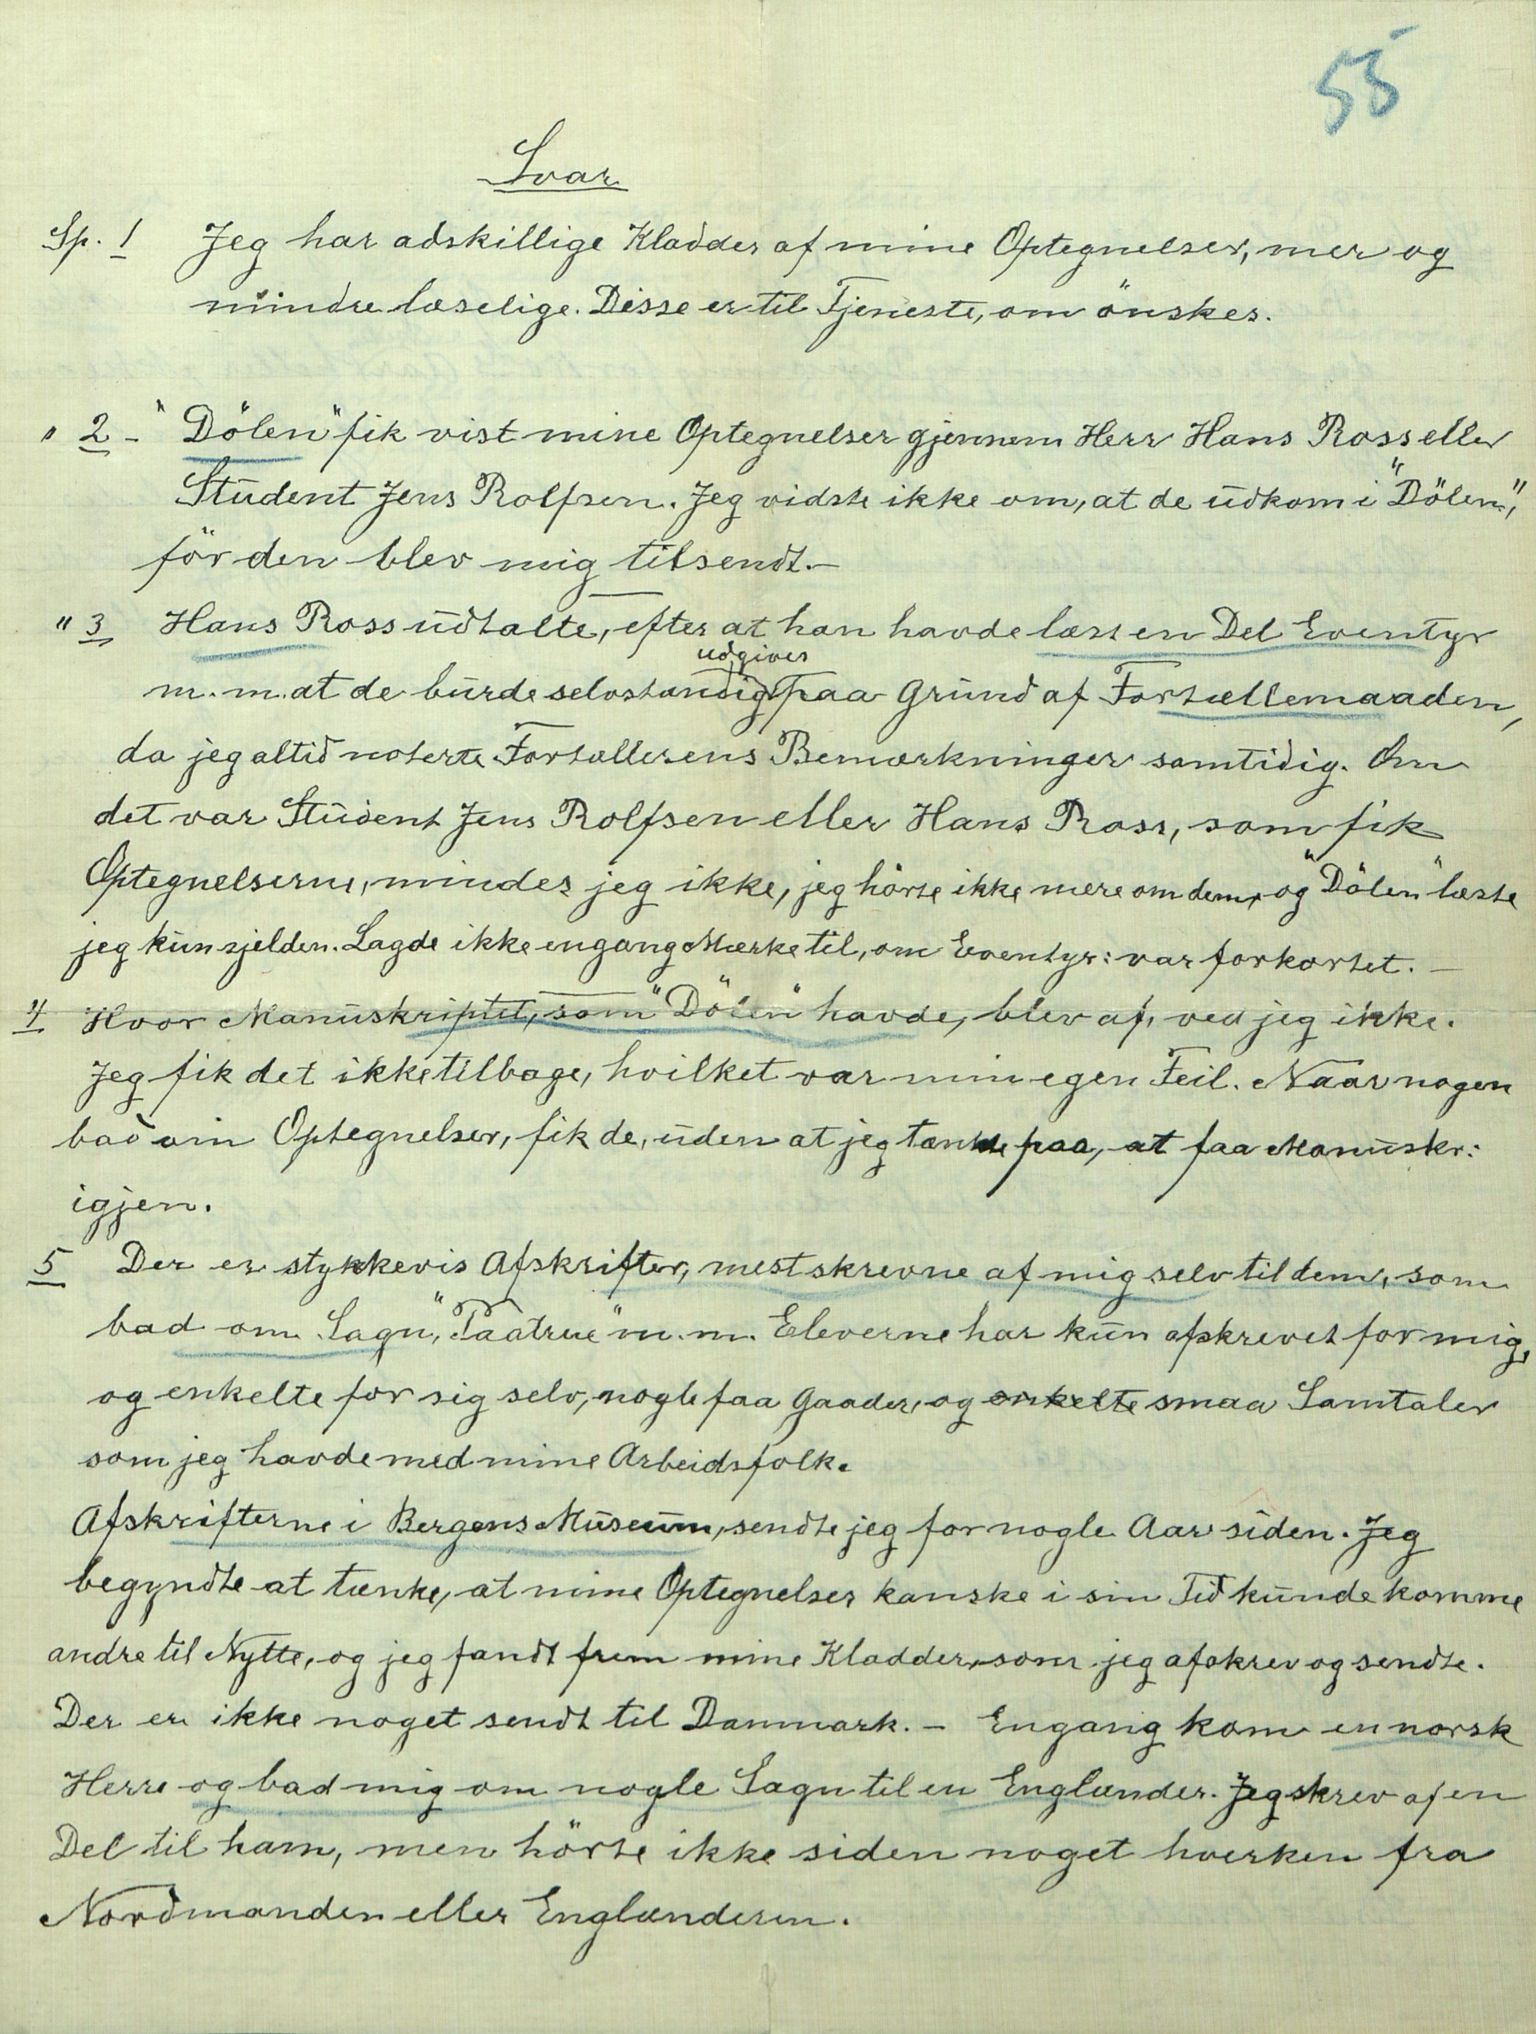 55
Svar
Sp. 1 Jeg har adskillige Kladder af mine Optegnelser, mer og
mindre læselige. Disse er til Tjeneste, om önskes.
" 2 - "Dölen" fik vist mine Optegnelser gjennem Herr Hans Ross eller
Student Jens Rolfsen. Jeg vidste ikke om, at de udkom i "Dölen",
för den blev mig tilsendt. -
" 3 Hans Ross udtalte, efter at han havde læst en Del Eventyr
udgives
m. m. at de burde selvstændig paa Grund af Fortællemaaden,
da jeg altid noterte Fortællerens Bemærkninger samtidig. Om
det var Student Jens Rolfsen eller Hans Ross, som fik
Optegnelserne, mindes jeg ikke, jeg hörte ikke mere om dem, og "Dölen" læste
jeg kun sjelden. Lagde ikke engang Mærke til, om Eventyr: var forkortet. -
4 Hvor Manuskriptet, som "Dölen" havde, blev af, ved jeg ikke.
Jeg fik det ikke tilbage, hvilket var min egen Feil. Naar nogen
bad om Optegnelser, fik de, uden at jeg tænkte paa, at faa Manuskr:
igjen.
5 Der er stykkevis Afskrifter, mest skrevne af mig selv til dem, som
bad om Sagn, "Paatrue" m. m. Eleverne har kun afskrevet for mig,
og enkelte for sig selv, nogle faa Gaader, og enkelte smaa Samtaler
som jeg havde med mine Arbeidsfolk.
Afskrifterne i Bergens Museum, sendte jeg for nogle Aar siden. Jeg
begyndte at tænke, at mine Optegnelser kanske i sin Tid kunde komme
andre til Nytte, og jeg fandt frem mine Kladder, som jeg afskrev og sendte.
Der er ikke noget sendt til Danmark. - Engang kom en norsk
Herre og bad mig om nogle Sagn til en Englænder. Jeg skrev af en
Del til ham, men hörte ikke siden noget hverken fra
Nordmanden eller Englænderen.